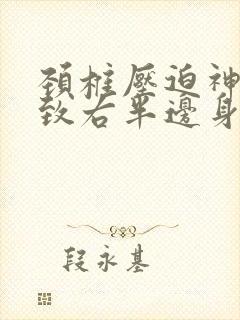 頚椎壓迫神
致右半邊身
段永基